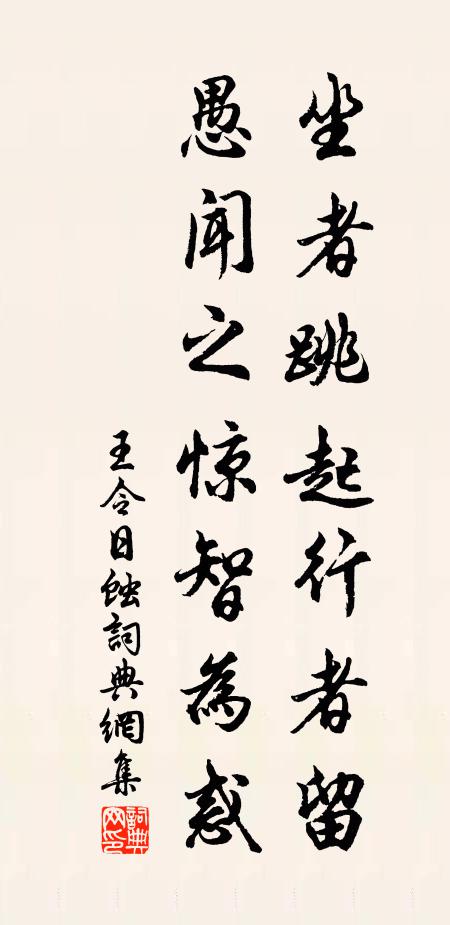 坐者跳起行者留
愚闻之惊智为惑
王令日蚀詞典網集
詞典网印